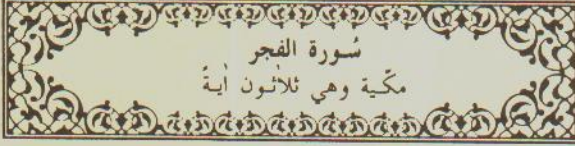 سُورة الفجر
مكّية وهي ثلاثون اٰيةً